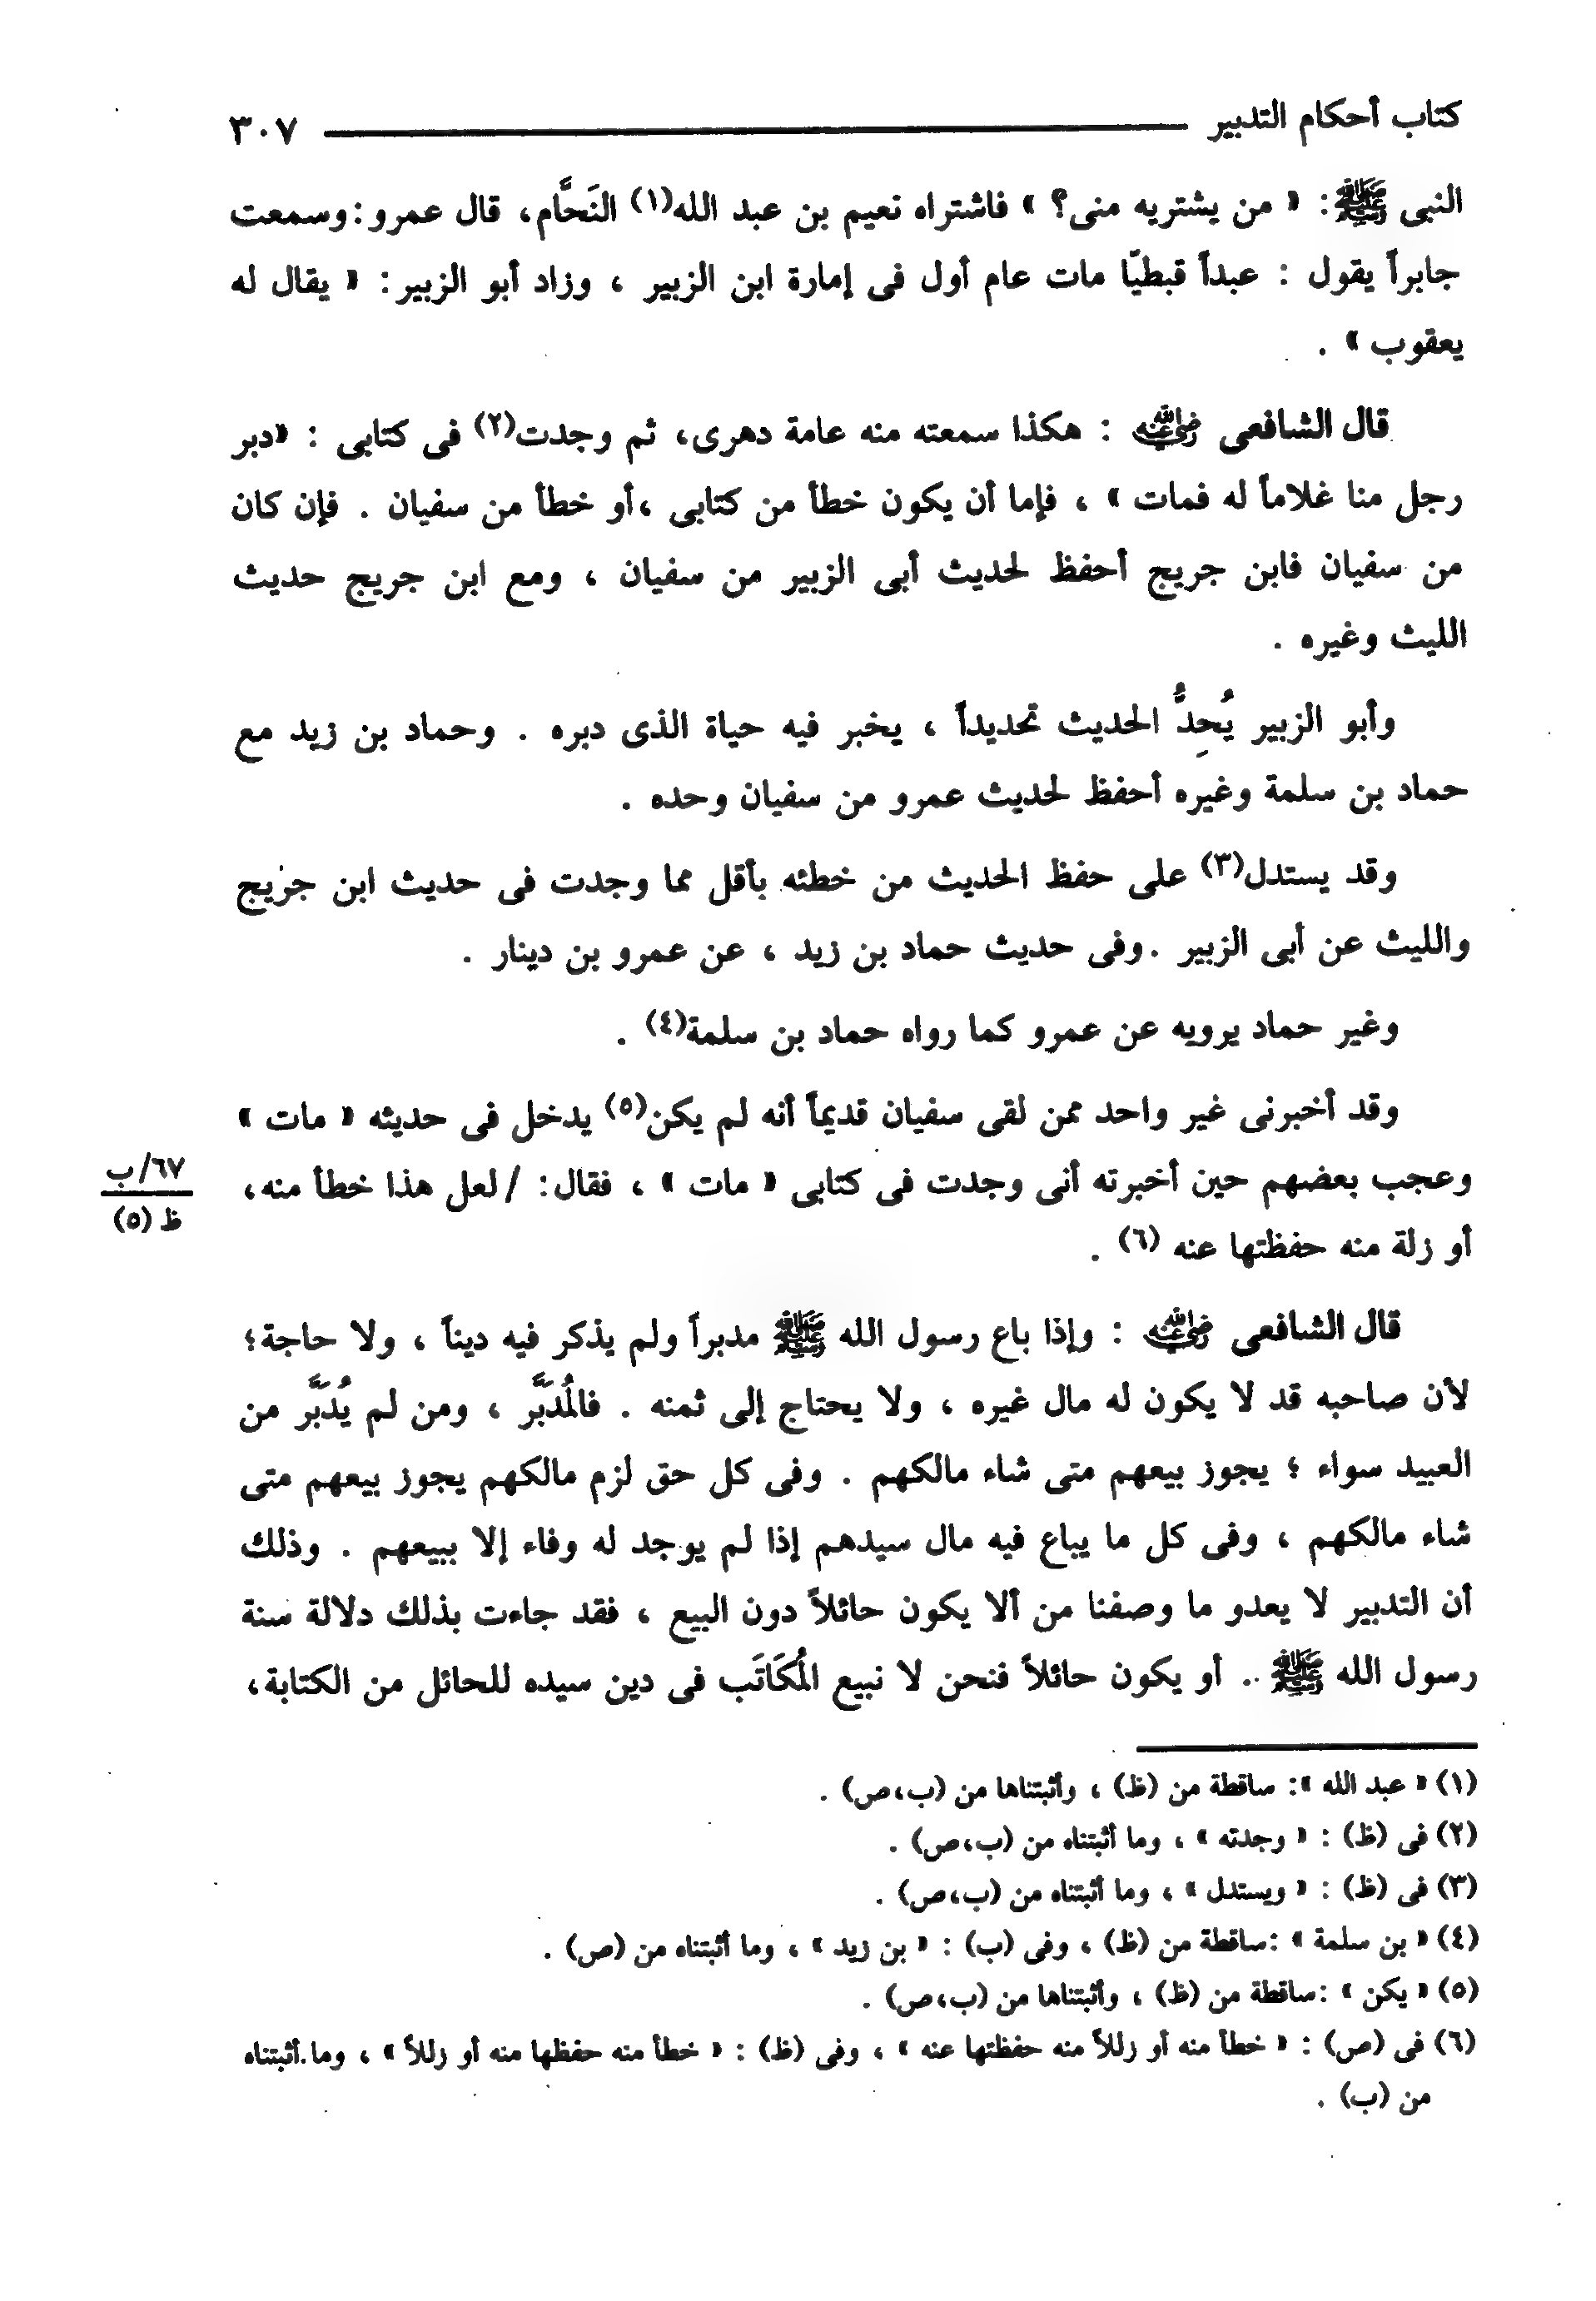 كتاب أحكام التدبير ٣٠٧
النبى ﷺ: « من يشتريه منى؟ » فاشتراه نعيم بن عبد الله(١) النَحَّام، قال عمرو: وسمعت
جابراً يقول : عبداً قبطيّا مات عام أول فى إمارة ابن الزبير ، وزاد أبو الزبير: « يقال له
يعقوب » .
قال الشافعى رضي الله عنه : هكذا سمعته منه عامة دهرى، ثم وجدت(٢) فى كتابى : «دبر
رجل منا غلاماً له فمات » ، فإما أن يكون خطأ من كتابى ،أو خطأ من سفيان . فإن كان
من سفيان فابن جريج أحفظ لحديث أبى الزبير من سفيان ، ومع ابن جريج حديث
الليث وغيره .
وأبو الزبير يُحِدُّ الحديث تحديداً ، يخبر فيه حياة الذى دبره . وحماد بن زيد مع
حماد بن سلمة وغيره أحفظ لحديث عمرو من سفيان وحده .
وقد يستدل(٣) على حفظ الحديث من خطئه بأقل مما وجدت فى حديث ابن جريج
والليث عن أبى الزبير .وفى حديث حماد بن زيد ، عن عمرو بن دينار .
وغير حماد يرويه عن عمرو كما رواه حماد بن سلمة(٤) .
وقد أخبرنى غير واحد ممن لقى سفيان قديماً أنه لم يكن(٥) يدخل فى حديثه « مات »
وعجب بعضهم حين أخبرته أنى وجدت فى كتابى « مات » ، فقال: / لعل هذا خطأ منه،
٦٧/ ب
ظ (٥)
أو زلة منه حفظتها عنه (٦) .
قال الشافعى رضي الله عنه : وإذا باع رسول الله ﷺ مدبراً ولم يذكر فيه ديناً ، ولا حاجة؛
لأن صاحبه قد لا يكون له مال غيره ، ولا يحتاج إلى ثمنه . فالمُدَبَّر ، ومن لم يُدَبَّر من
العبيد سواء ؛ يجوز بيعهم متى شاء مالكهم . وفى كل حق لزم مالكهم يجوز بيعهم متى
شاء مالكهم ، وفى كل ما يباع فيه مال سيدهم إذا لم يوجد له وفاء إلا ببيعهم . وذلك
أن التدبير لا يعدو ما وصفنا من ألا يكون حائلاً دون البيع ، فقد جاءت بذلك دلالة سنة
رسول الله ﷺ .. أو يكون حائلاً فنحن لا نبيع المُكَاتَب فى دين سيده للحائل من الكتابة،
(١) « عبد الله »: ساقطة من (ظ) ، وأثبتناها من (ب،ص) .
(٢) فى (ظ) : « وجدته » ، وما أثبتناه من (ب،ص) .
(٣) فى (ظ) : « ويستدل » ، وما أثبتناه من (ب،ص) .
(٤) « بن سلمة » :ساقطة من (ظ) ، وفى (ب) : « بن زيد » ، وما أثبتناه من (ص) .
(٥) « يكن » :ساقطة من (ظ) ، وأثبتناها من (ب،ص) .
(٦) فى (ص) : « خطأ منه أو زللاً منه حفظتها عنه » ، وفى (ظ) : « خطأ منه حفظها منه أو زللاً » ، وما أثبتناه
من (ب) .